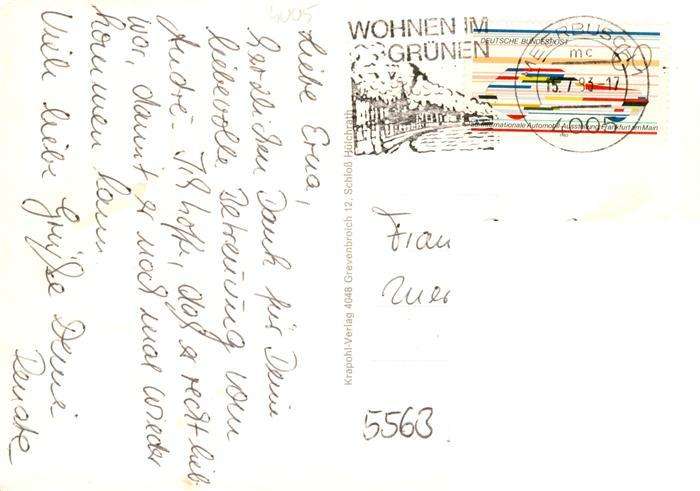 Liebe Erna,
herzlichen Dank für Dein
liebevolle Betreuung vom
André - Ich hoffe, daß er recht lieb
war, damit er noch mal wieder
kommen kann.
Viele liebe Grüße Deine
Renate
6005
WOHNEN IM
GRÜNEN
MEERBUSCH
mc
15.7.83-17
4005
80
DEUTSCHE BUNDESPOST
Internationale Automobil-Ausstellung Frankfurt am Main
Krapohl-Verlag 4048 Grevenbroich 12, Schloß Hülchrath
Frau
5563